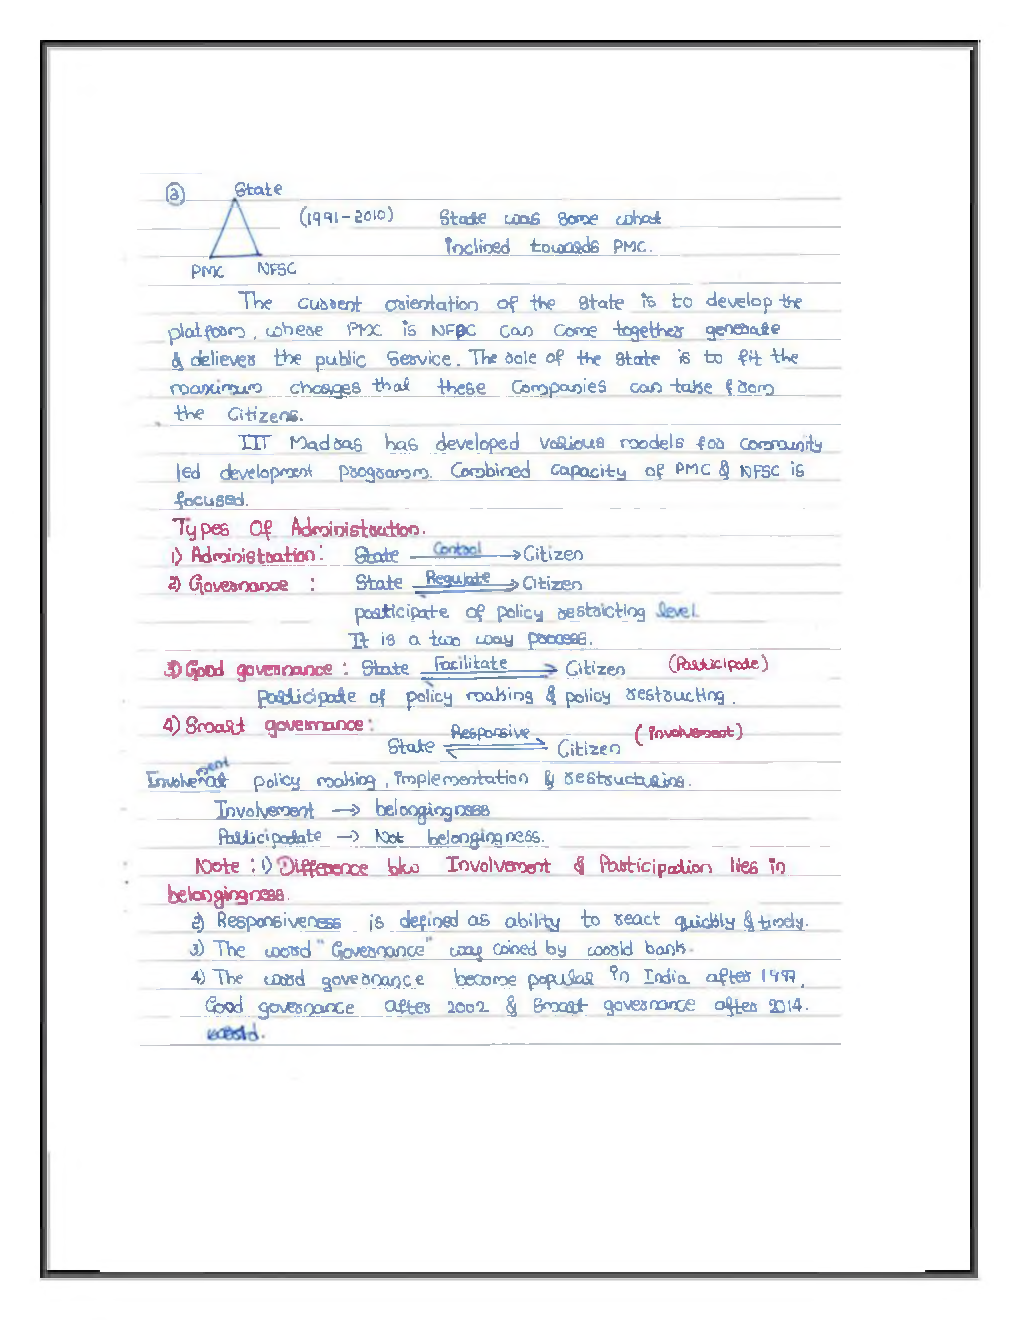 ② State
(1991-2010) State was some what
inclined towards PMC.
PMC NFSC
The current orientation of the state is to develop the
platform, where PMC is NFSC can come together generate
& deliever the public Service. The role of the state is to fit the
maximum charges that these Companies can take from
the Citizens.
IIT Madras has developed various models for community
led development programm. Combined capacity of PMC & NFSC is
focused.
Types Of Administration.
1) Administration: State Control Citizen
2) Governance : State Regulate Citizen
participate of policy restricting level.
It is a two way process.
3) Good governance : State Facilitate Citizen (Participate)
Participate of policy making & policy restructing.
4) Smart governance: State Responsive Citizen (Involvement)
Involvement policy making, implementation & restructuring.
Involvement → belongingness
Participate → Not belongingness.
Note : 1) Difference b/w Involvement & Participation lies in
belongingness.
2) Responsiveness is defined as ability to react quickly & timely.
3) The word "Governance" way coined by world bank.
4) The word governance become popular in India after 1997,
Good governance after 2002 & Smart governance after 2014.
world.